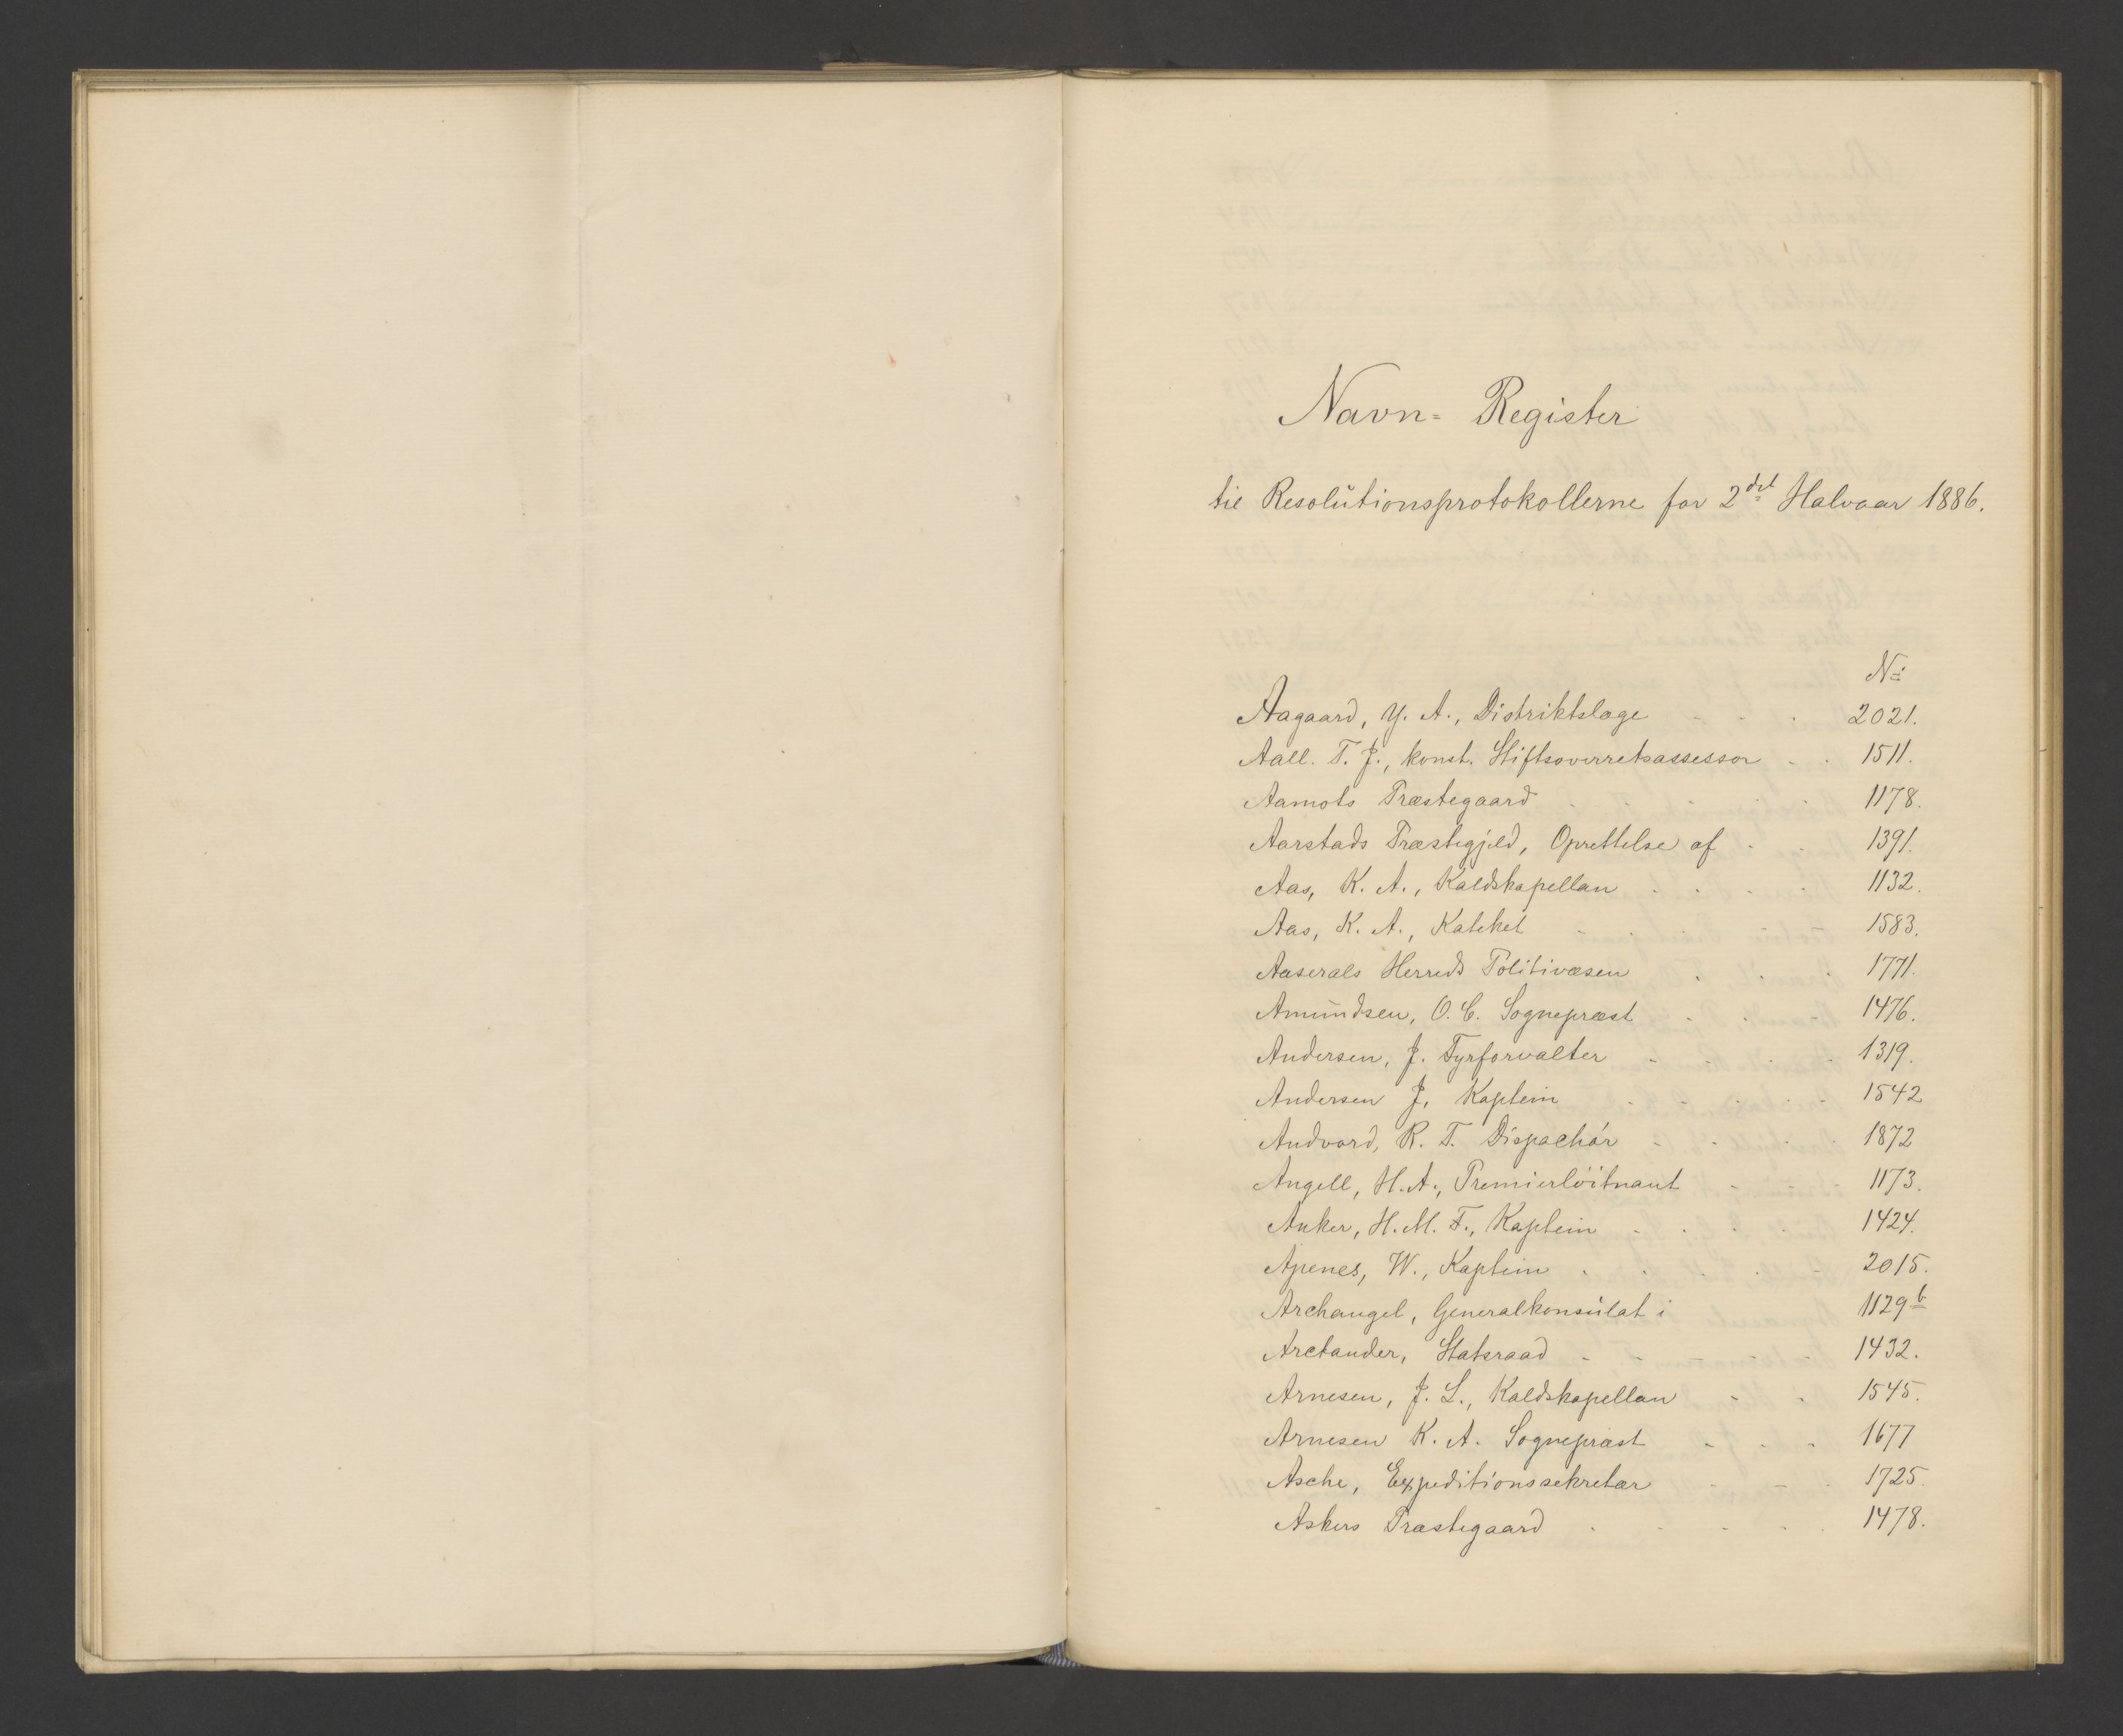 Navn- Register
til Resolutionsprotokollerne for 2det Halvaar 1886.
No
Aagaard, Y. A., Distriktslæge - - - 2021.
Aall. T. J., konst. Stiftsoverretsassessor - - 1511.
Aamots Præstegaard - - - 1178.
Aarstads Præstegjeld, Oprettelse af - - 1391.
Aas, K. A., Kaldskapellan - - - 1132.
Aas, K. A., Kateket - - - 1583.
Aaserals Herreds Politivæsen - - - 1771.
Amundsen, O. C. Sognepræst - - - 1476.
Andersen, J. Fyrforvalter - - - 1319.
Andersen J, Kaptein - - - 1542
Andvord, R. T. Dispachör - - - 1872
Angell, H. A., Premierlöitnant - - - 1173.
Anker, H. M. F., Kaptein - - - 1424.
Apenes, W., Kaptein - - - 2015.
Archangel, Generalkonsulat i 1129 b.
Arctander, Statsraad - - - 1432.
Arnesen, J. L., Kaldskapellan - - 1545.
Arnesen K. A. Sognepræst - - - 1677
Asche, Expeditionssekretær - - - 1725.
Askers Præstegaard - - - 1478.